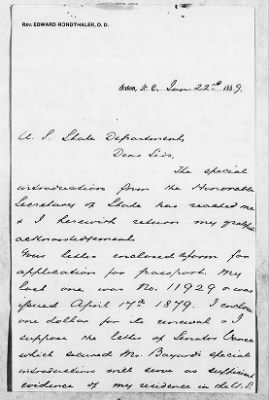 REV. EDWARD RONDTHALER, D. D.
Salem, N. C. June 22nd 1889.
U. S. State Department
Dear Sirs,
The special
introduction from the Honorable
Secretary of State has reached me
& I herewith return my grateful
acknowledgement.
Your letter enclosed a form for
application for passport. My
last one was No. 11929 & was
issued April 17th 1879. I enclose
one dollar for its renewal & I
suppose the letter of Senator Vance
which secured Mr. Bayard's special
introduction will serve as sufficient
evidence of my residence in the U. S.